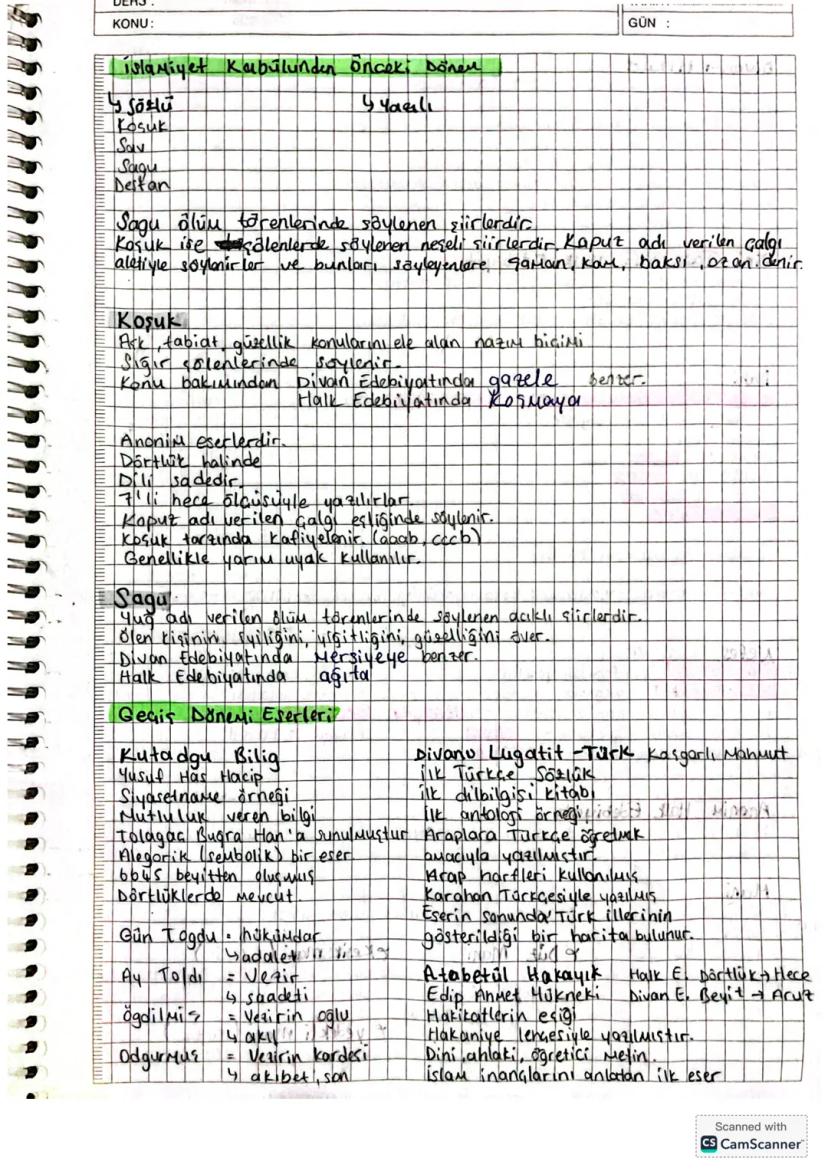 DERS :
KONU:
GÜN :
İslamiyet Kabülünden Önceki Dönem
↳ Sözlü ↳ Yazılı
Koşuk
Sav
Sagu
Destan
Sagu ölüm törenlerinde söylenen şiirlerdir.
Koşuk ise şölenlerde söylenen neşeli şiirlerdir. Kopuz adı verilen çalgı
aletiyle söylenirler ve bunları söyleyenlere şaman, kam, baksı, ozan denir.
Koşuk
Aşk, tabiat, güzellik konularını ele alan nazım biçimi
Sığır şölenlerinde söylenir.
Konu bakımından Divan Edebiyatında gazele benzer.
Halk Edebiyatında Koşmaya
Anonim eserlerdir.
Dörtlük halinde
Dili sadedir.
7'li hece ölçüsüyle yazılırlar.
Kopuz adı verilen çalgı eşliğinde söylenir.
Koşuk tarzında kafiyelenir. (aaab, cccb)
Genellikle yarım uyak kullanılır.
Sagu
Yuğ adı verilen ölüm törenlerinde söylenen acıklı şiirlerdir.
Ölen kişinin iyiliğini, yiğitliğini, güzelliğini över.
Divan Edebiyatında Mersiyeye benzer.
Halk Edebiyatında ağıta
Geçiş Dönemi Eserleri
Kutadgu Bilig
Yusuf Has Hacip
Siyasetname örneği
Mutluluk veren bilgi
Tolagaç Buğra Han'a sunulmuştur
Alegorik (sembolik) bir eser
6645 beyitten oluşmuş
Dörtlüklerde mevcut.
Gün Togdu = hükümdar
↳ adalet
Ay Toldı = Vezir
↳ saadeti
Ögdilmiş = Vezirin oğlu
↳ akıl
Odgurmuş = Vezirin kardeşi
↳ akıbet, son
Divanu Lugatit-Türk Kaşgarlı Mahmut
İlk Türkçe Sözlük
İlk dilbilgisi kitabı
İlk antoloji örneği
Araplara Türkçe öğretmek
amacıyla yazılmıştır.
Arap harfleri kullanılmış
Karahan Türkçesiyle yazılmış
Eserin sonunda Türk illerinin
gösterildiği bir harita bulunur.
Atabetül Hakayık Halk E. Dörtlük → Hece
Edip Ahmet Yükneki Divan E. Beyit → Aruz
Hakikatlerin eşiği
Hakaniye lehçesiyle yazılmıştır.
Dini, ahlaki, öğretici metin.
İslam inançlarını anlatan ilk eser
Scanned with
CS CamScanner